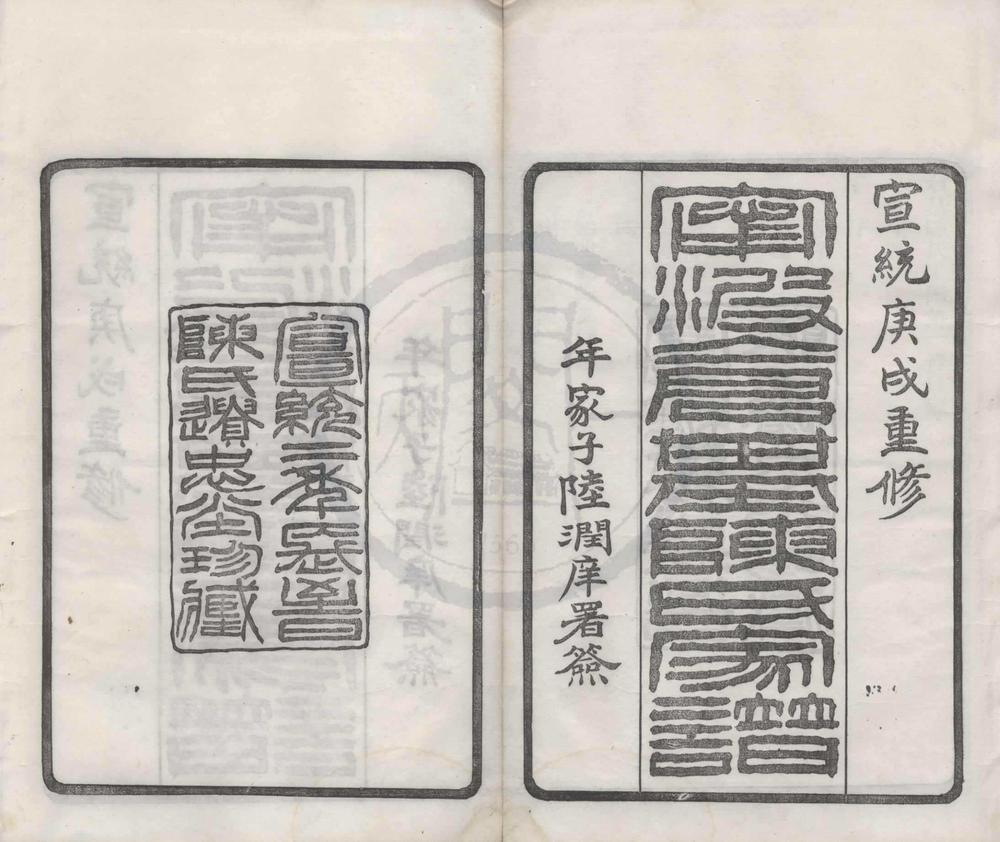 宣統庚戌重修
甯波倉基陳氏家譜
年家子陸潤庠署簽
宣統二年長至日
陳氏遺忠堂珍藏